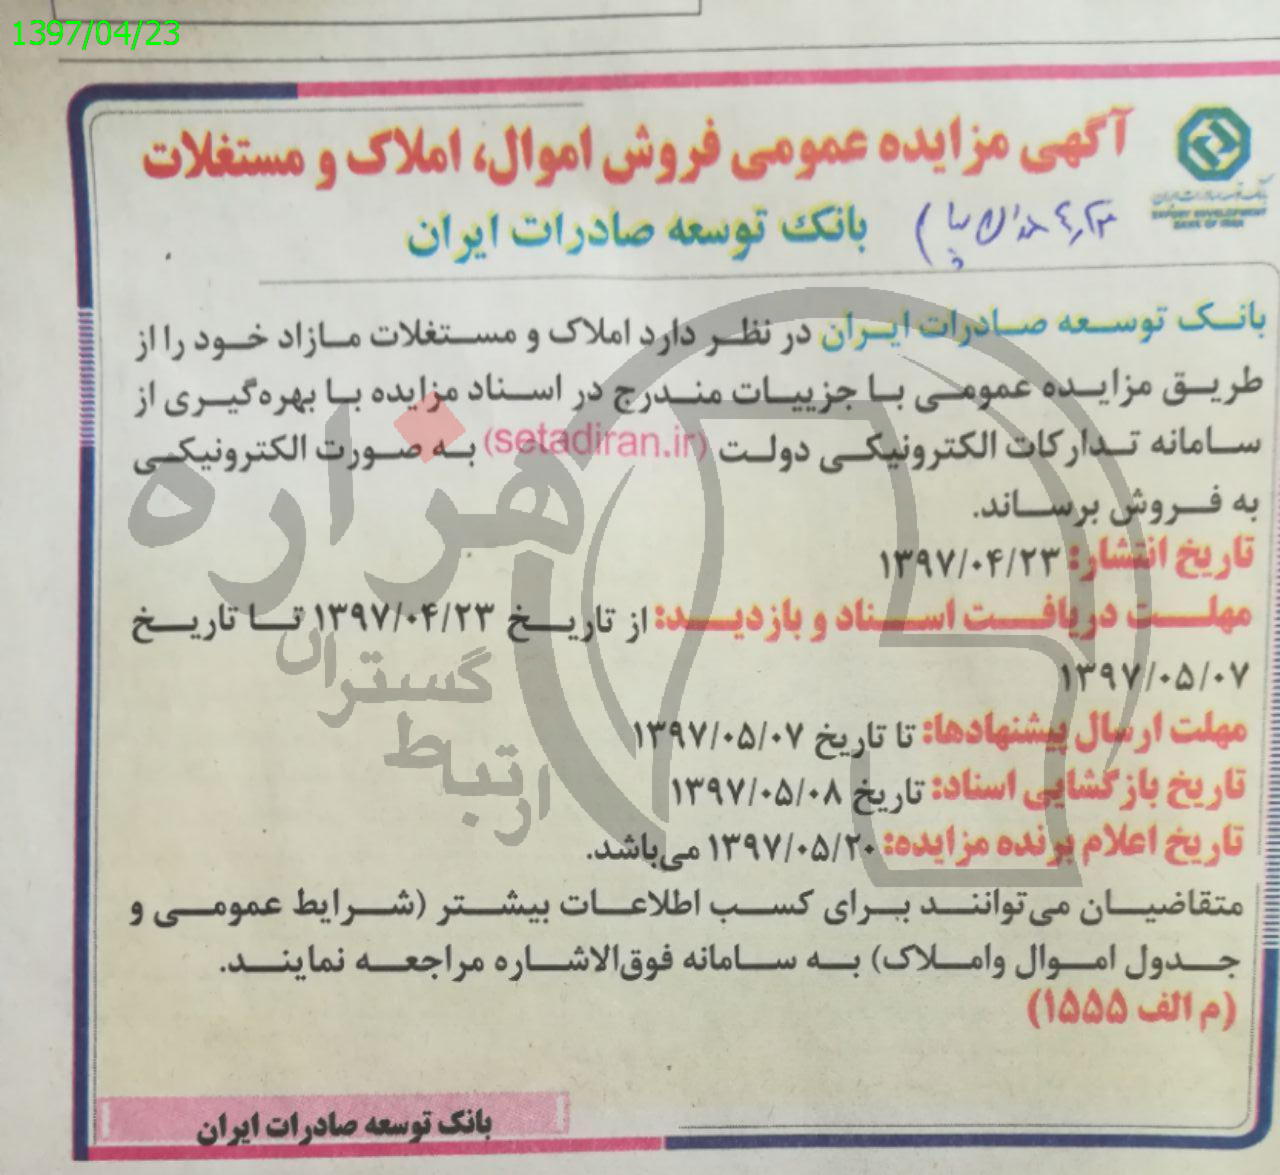 1397/04/23
آگهی مزایده عمومی فروش اموال، املاک و مستغلات
بانک توسعه صادرات ایران
EXPORT DEVELOPMENT
BANK OF IRAN
بانک توسعه صادرات ایران
بانک توسعه صادرات ایران در نظر دارد املاک و مستغلات مازاد خود را از
طریق مزایده عمومی با جزییات مندرج در اسناد مزایده با بهره‌گیری از
سامانه تدارکات الکترونیکی دولت (setadiran.ir) به صورت الکترونیکی
به فروش برساند.
تاریخ انتشار: ۱۳۹۷/۰۴/۲۳
مهلت دریافت اسناد و بازدید: از تاریخ ۱۳۹۷/۰۴/۲۳ تا تاریخ
۱۳۹۷/۰۵/۰۷
مهلت ارسال پیشنهادها: تا تاریخ ۱۳۹۷/۰۵/۰۷
تاریخ بازگشایی اسناد: تاریخ ۱۳۹۷/۰۵/۰۸
تاریخ اعلام برنده مزایده: ۱۳۹۷/۰۵/۲۰ می‌باشد.
متقاضیان می‌توانند برای کسب اطلاعات بیشتر (شرایط عمومی و
جدول اموال واملاک) به سامانه فوق‌الاشاره مراجعه نمایند.
(م الف ۱۵۵۵)
بانک توسعه صادرات ایران
هزاره
گستران
ارتباط